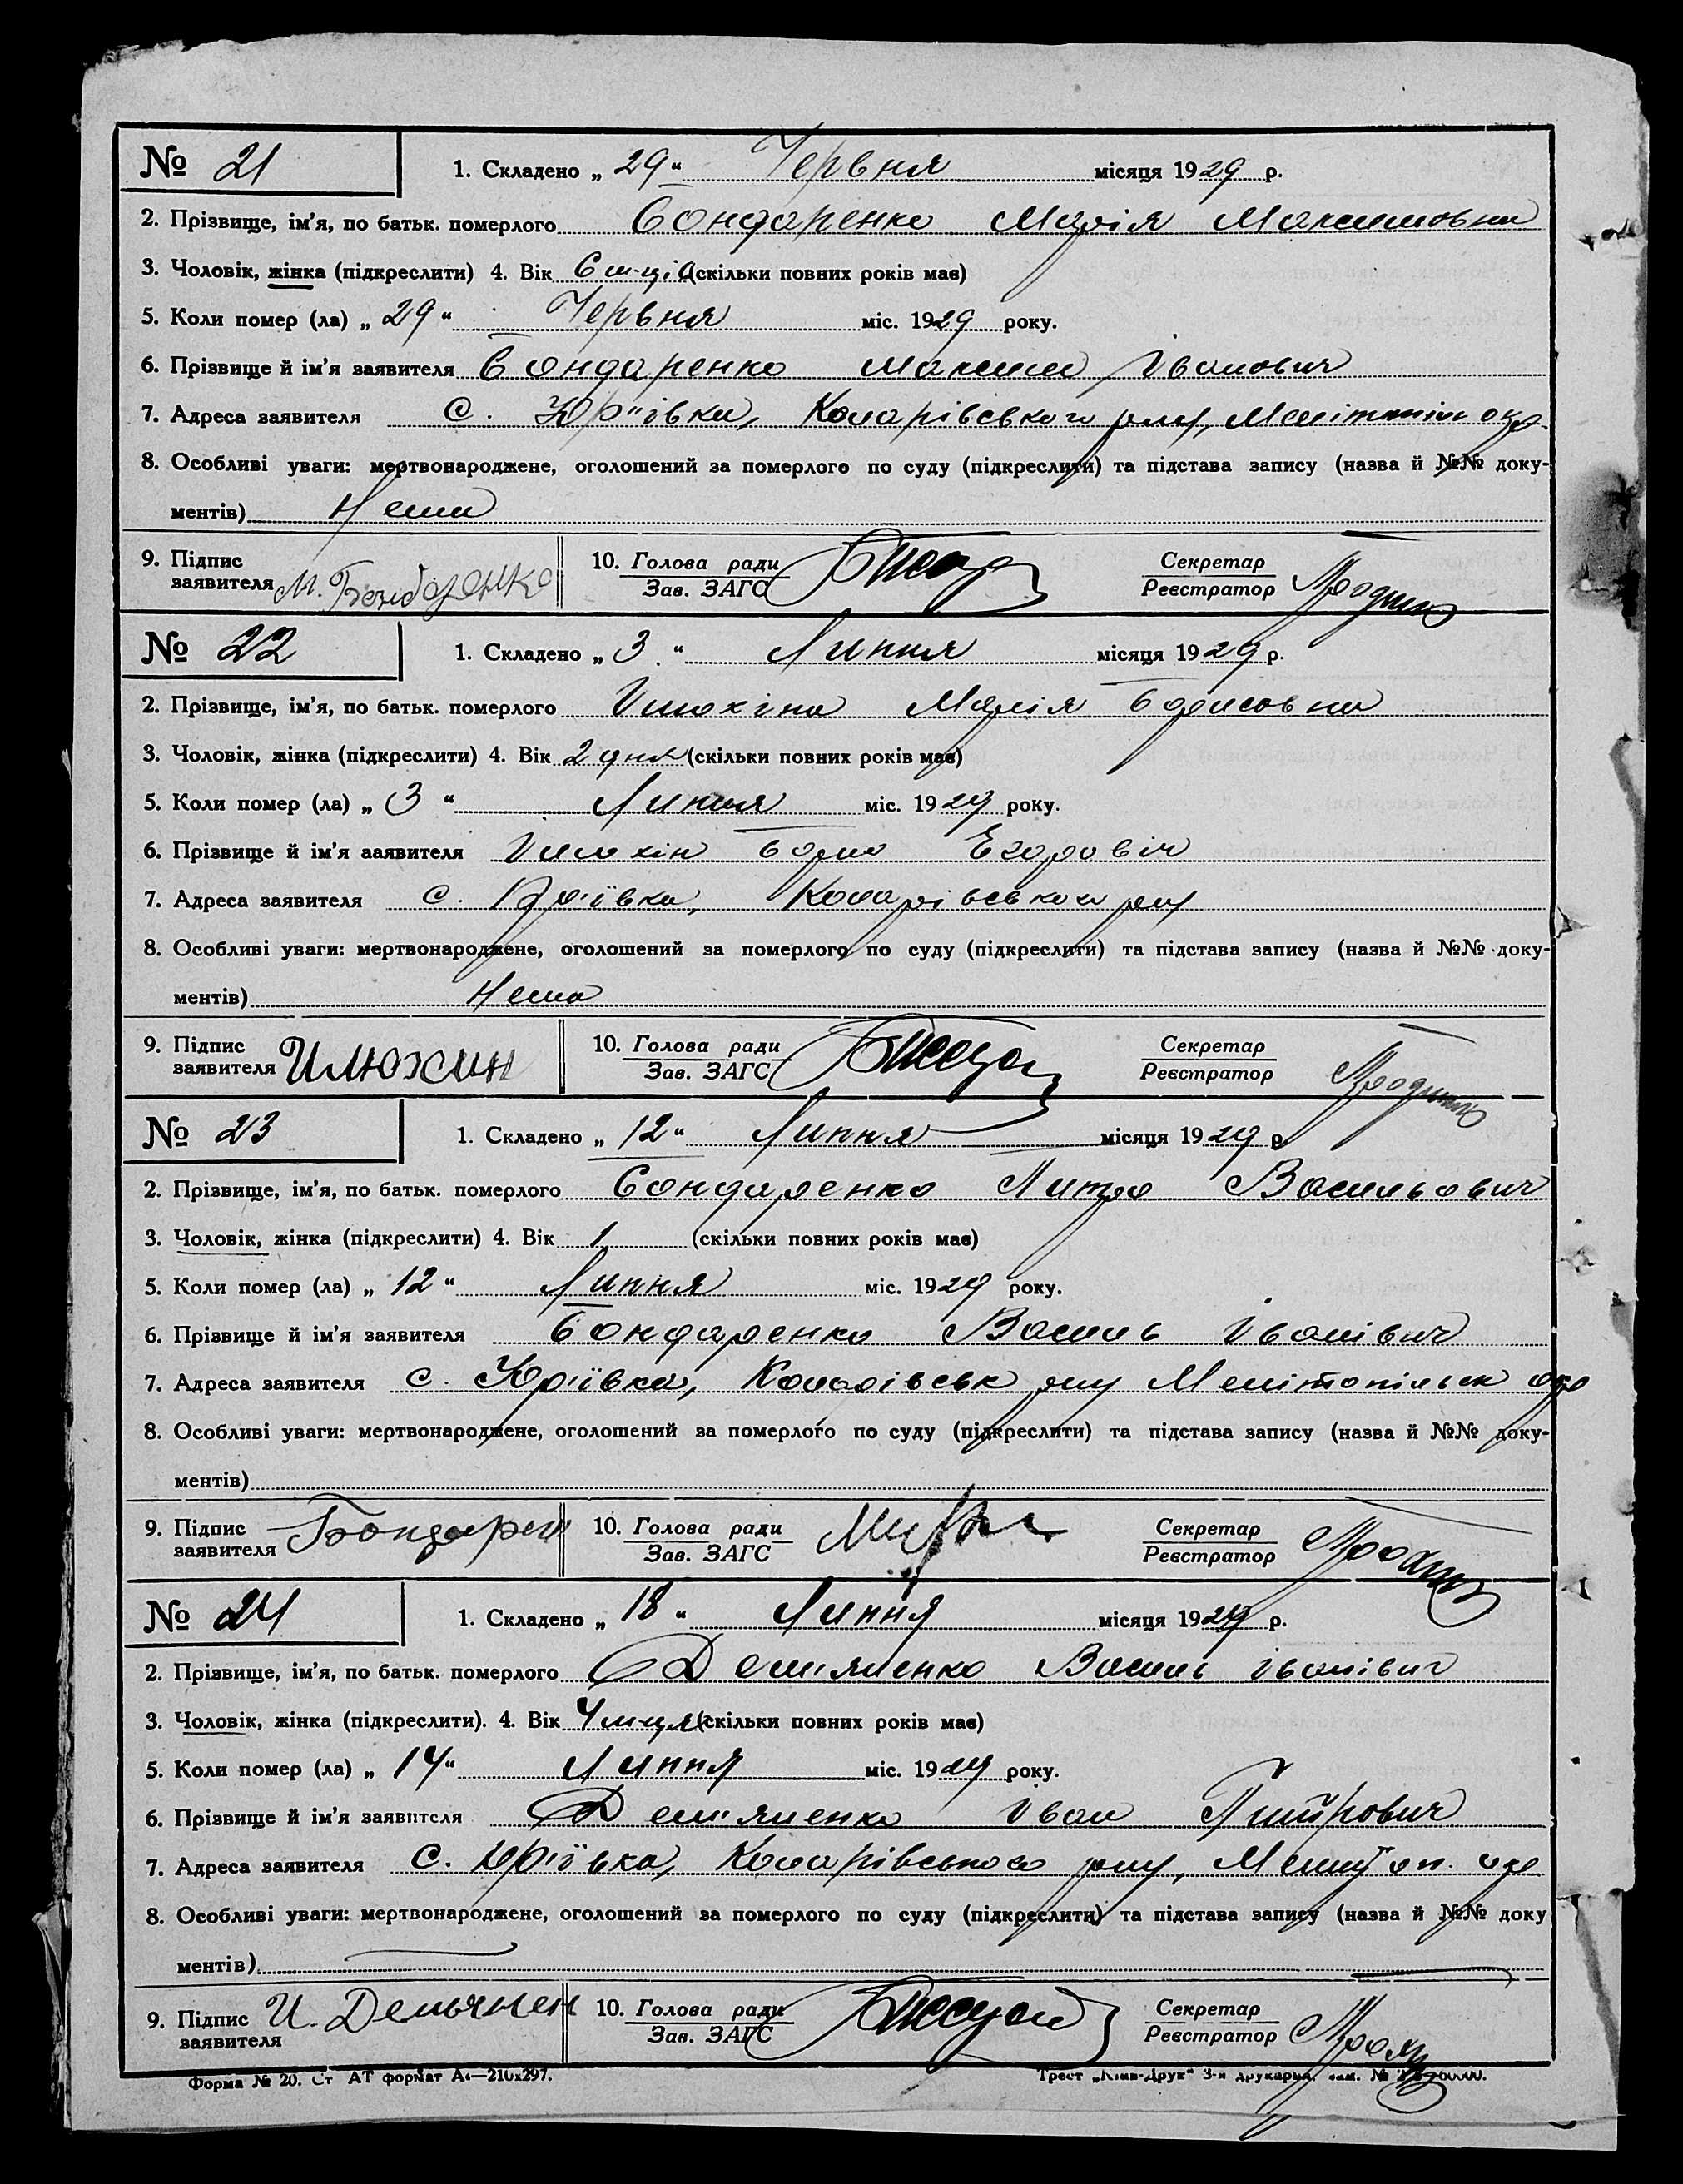 № 21 1. Складено „ 29 “ Червня місяця 1929 р.
2. Прізвище, ім'я, по батьк. померлого Бондаренко Марія Максимовна
3. Чоловік, жінка (підкреслити) 4. Вік 6 м-ців (скільки повних років має)
5. Коли помер (ла) „ 29 “ Червня міс. 1929 року.
6. Прізвище й ім'я заявителя Бондаренко Максим Іванович
7. Адреса заявителя С. Юр'ївка, Коларівського р-ну, Мелітопіль окр
8. Особливі уваги: мертвонароджене, оголошений за померлого по суду (підкреслити) та підстава запису (назва й №№ доку-
ментів) Нема
9. Підпис заявителя М. Бондаренко 10. Голова ради Зав. ЗАГС Секретар Реєстратор
№ 22 1. Складено „ 3 “ Липня місяця 1929 р.
2. Прізвище, ім'я, по батьк. померлого Ілюхіна Марія Борисовна
3. Чоловік, жінка (підкреслити) 4. Вік 2 дня (скільки повних років має)
5. Коли помер (ла) „ 3 “ Липня міс. 1929 року.
6. Прізвище й ім'я заявителя Ілюхін Борис Егоровіч
7. Адреса заявителя с. Юр'ївка, Коларівського р-ну
8. Особливі уваги: мертвонароджене, оголошений за померлого по суду (підкреслити) та підстава запису (назва й №№ доку-
ментів) Нема
9. Підпис заявителя Илюхин 10. Голова ради Зав. ЗАГС Секретар Реєстратор
№ 23 1. Складено „ 12 “ Липня місяця 1929 р.
2. Прізвище, ім'я, по батьк. померлого Бондаренко Питро Васильович
3. Чоловік, жінка (підкреслити) 4. Вік 1 (скільки повних років має)
5. Коли помер (ла) „ 12 “ Липня міс. 1929 року.
6. Прізвище й ім'я заявителя Бондаренко Василь Іванівич
7. Адреса заявителя с. Юр'ївка, Коларівськ р-ну Мелітопільск окр
8. Особливі уваги: мертвонароджене, оголошений за померлого по суду (підкреслити) та підстава запису (назва й №№ доку-
ментів)
9. Підпис заявителя Бондарен 10. Голова ради Зав. ЗАГС Секретар Реєстратор
№ 24 1. Складено „ 18 “ Липня місяця 1929 р.
2. Прізвище, ім'я, по батьк. померлого Дем'яненко Василь Іванівич
3. Чоловік, жінка (підкреслити). 4. Вік 4 м-ця (скільки повних років має)
5. Коли помер (ла) „ 14 “ Липня міс. 1929 року.
6. Прізвище й ім'я заявителя Дем'яненко Іван Питрович
7. Адреса заявителя С. Юр'ївка, Коларівського р-ну, Меліт оп. окр
8. Особливі уваги: мертвонароджене, оголошений за померлого по суду (підкреслити) та підстава запису (назва й №№ доку
ментів)
9. Підпис заявителя И. Демьянен 10. Голова ради Зав. ЗАГС Секретар Реєстратор
Форма № 20. Ст АТ формат А4—210х297. Трест „Київ-Друк“ 3-я друкарня, зам. №